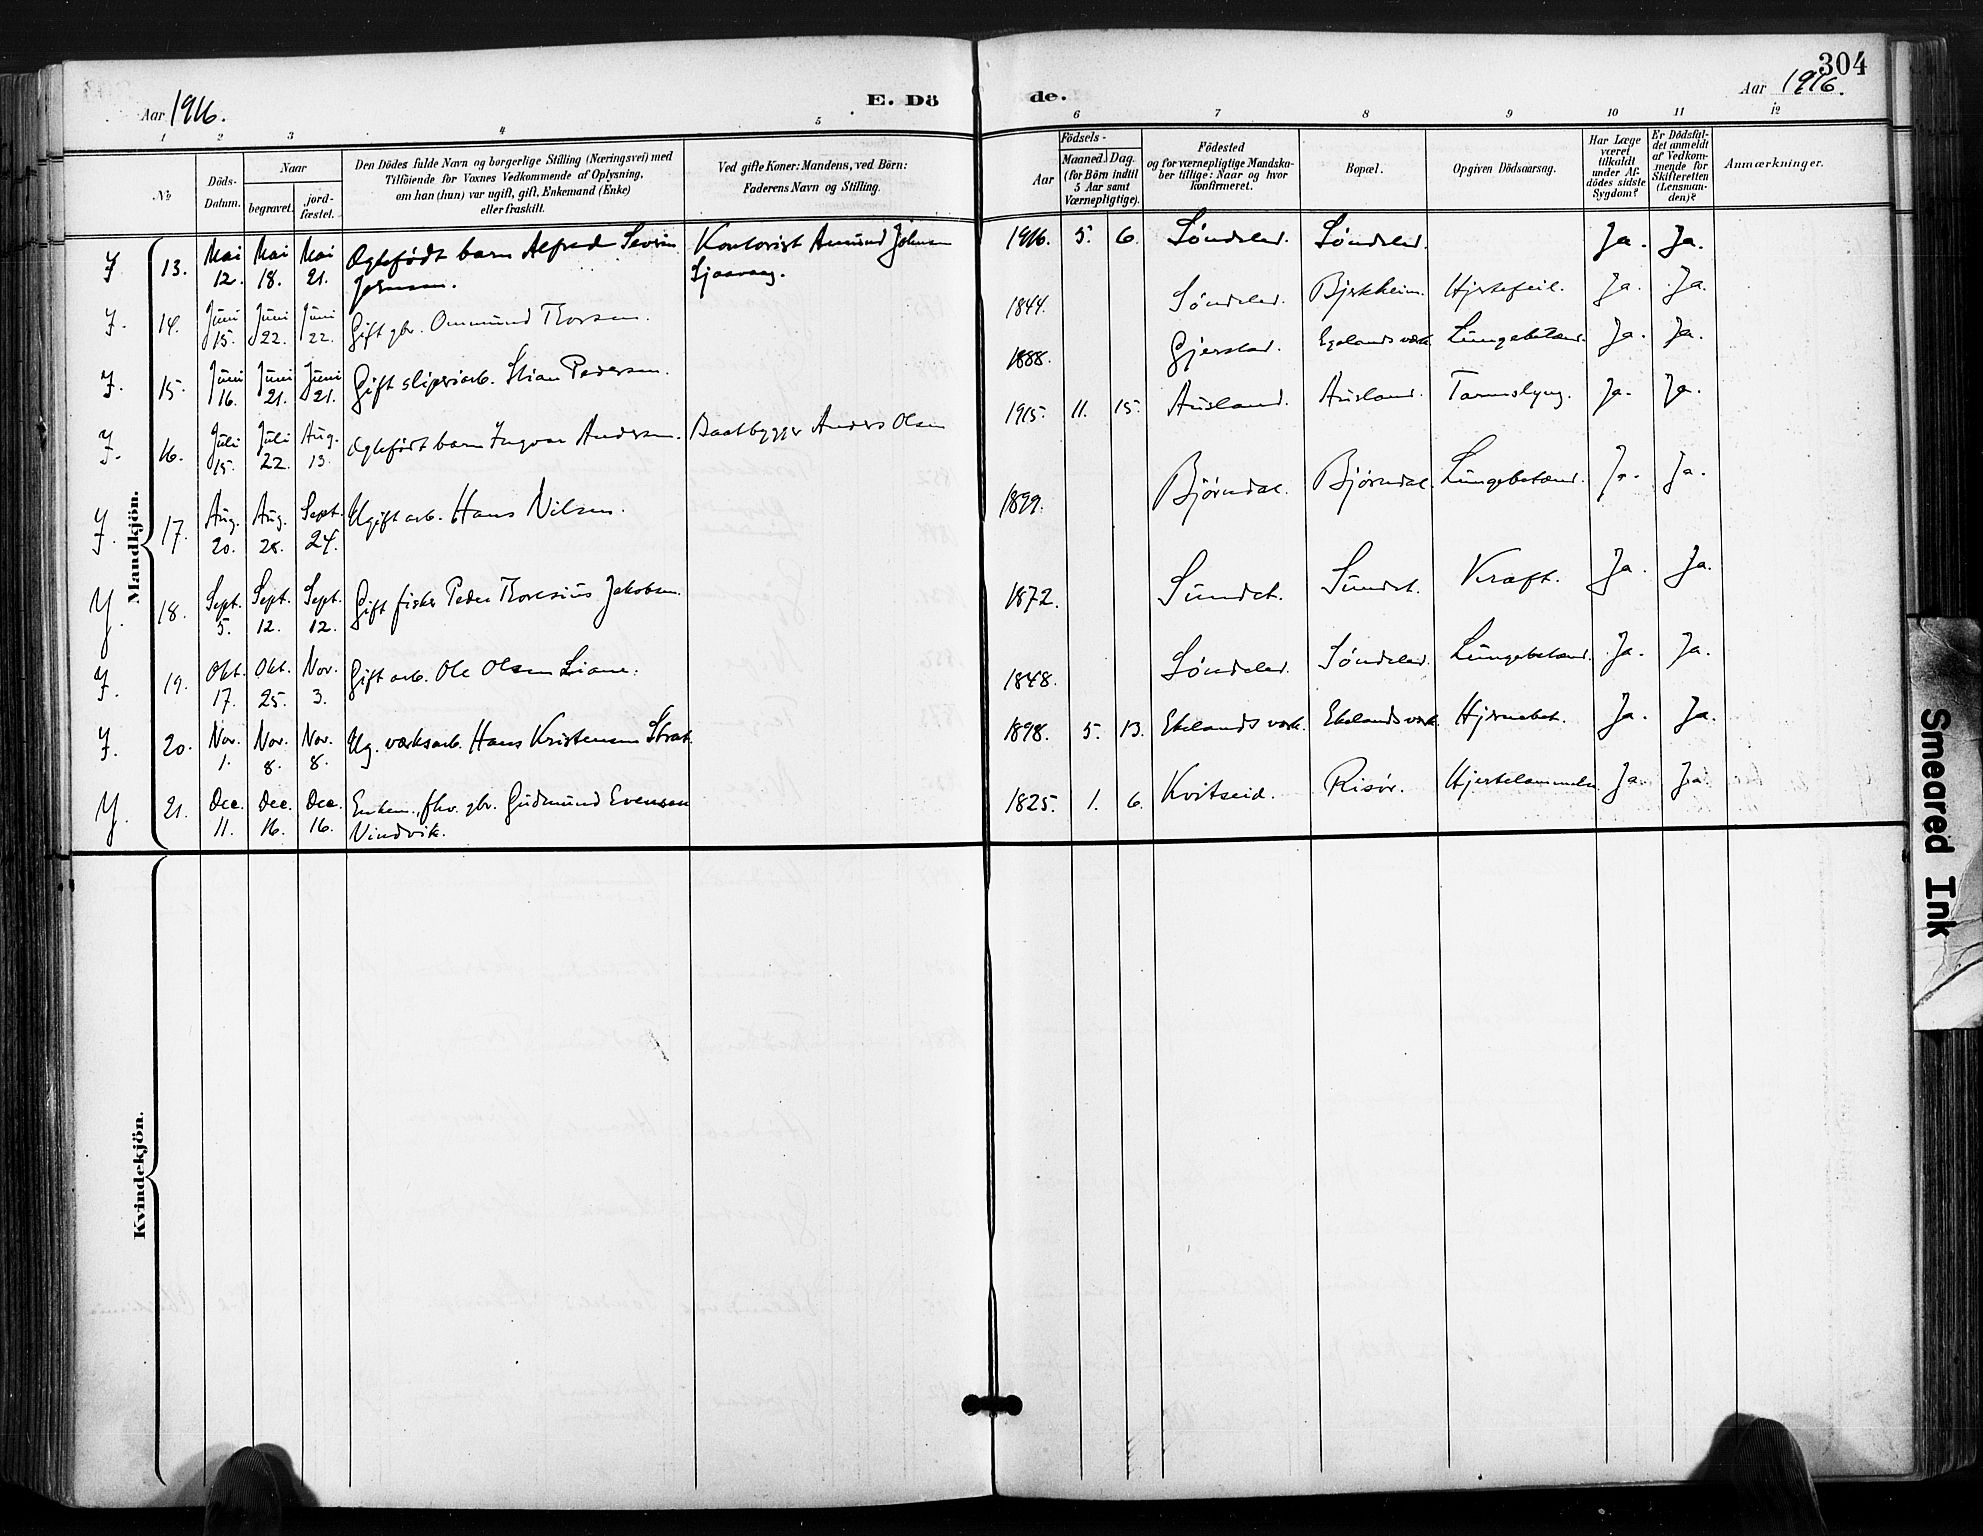 304
Aar 1916.
E. Dö
de.
Aar 1916.
1 2 3 4 5 6 7 8 9 10 11 12
№
Döds-
Datum.
Naar
begravet.
jord-
fæstet.
Den Dödes fulde Navn og borgerlige Stilling (Næringsvei) med
Tilföiende for Voxnes Vedkommende af Oplysning,
om han (hun) var ugift, gift, Enkemand (Enke)
eller fraskilt.
Ved gifte Koner: Mandens, ved Börn:
Faderens Navn og Stilling.
Födsels-
Aar
Maaned. Dag.
(for Börn indtil
5 Aar samt
Værnepligtige).
Födested
og for værnepligtige Mandska-
ber tillige: Naar og hvor
konfirmeret.
Bopæl.
Opgiven Dödsaarsag.
Har Læge
været
tilkaldt
under Af-
dödes sidste
Sygdom?
Er Dödsfal-
det anmeldt
af Vedkom-
mende for
Skifteretten
(Lensman-
den)?
Anmærkninger.
Mandkjön.
J 13. Mai 12. Mai 18. Mai 21. Ægtefødt barn Alfred Severin Kontorist Amund Johnsen 1916. 5. 6. Søndeled. Søndeled. Ja. Ja.
Johnsen. Sjaavaag.
J. 14. Juni 15. Juni 22. Juni 22. Gift gbr. Ommund Thorsen. 1844. Søndeled. Bjerkheim. Hjertefeil. Ja. Ja.
J. 15. Juni 16. Juni 21. Juni 21. Gift sliperiarb. Stian Pedersen. 1888. Gjerstad. Egelands værk. Lungebetænd. Ja. Ja.
J. 16. Juli 15. Juli 22. Aug. 13. Ægtefødt barn Ingvar Andersen. Baatbygger Anders Olsen 1915. 11. 15. Ausland. Ausland. Tarmslyng. Ja. Ja.
J. 17. Aug. 20. Aug. 28. Sept. 24. Ugift arb. Hans Nilsen. 1899. Bjørndal. Bjørndal. Lungebetænd. Ja. Ja.
J. 18. Sept. 5. Sept. 12. Sept. 12. Gift fisker Peder Thoresius Jakobsen. 1872. Sundet. Sundet. Kræft. Ja. Ja.
J. 19. Okt. 17. Okt. 25. Nov. 3. Gift arb. Ole Olsen Liane. 1848. Søndeled. Søndeled. Lungebetænd. Ja. Ja.
J. 20. Nov. 1. Nov. 8. Nov. 8. Ug. værksarb. Hans Kristensen Strat. 1898. 5. 13. Ekelands værk. Ekelands værk. Hjernebet. Ja. Ja.
J. 21. Dec. 11. Dec. 16. Dec. 16. Enkem. fhv. gbr. Gudmund Evensen 1825. 1. 6. Kvitseid. Risør. Hjertelammelse Ja. Ja.
Vindvik.
Kvindekjön.
Smeared Ink